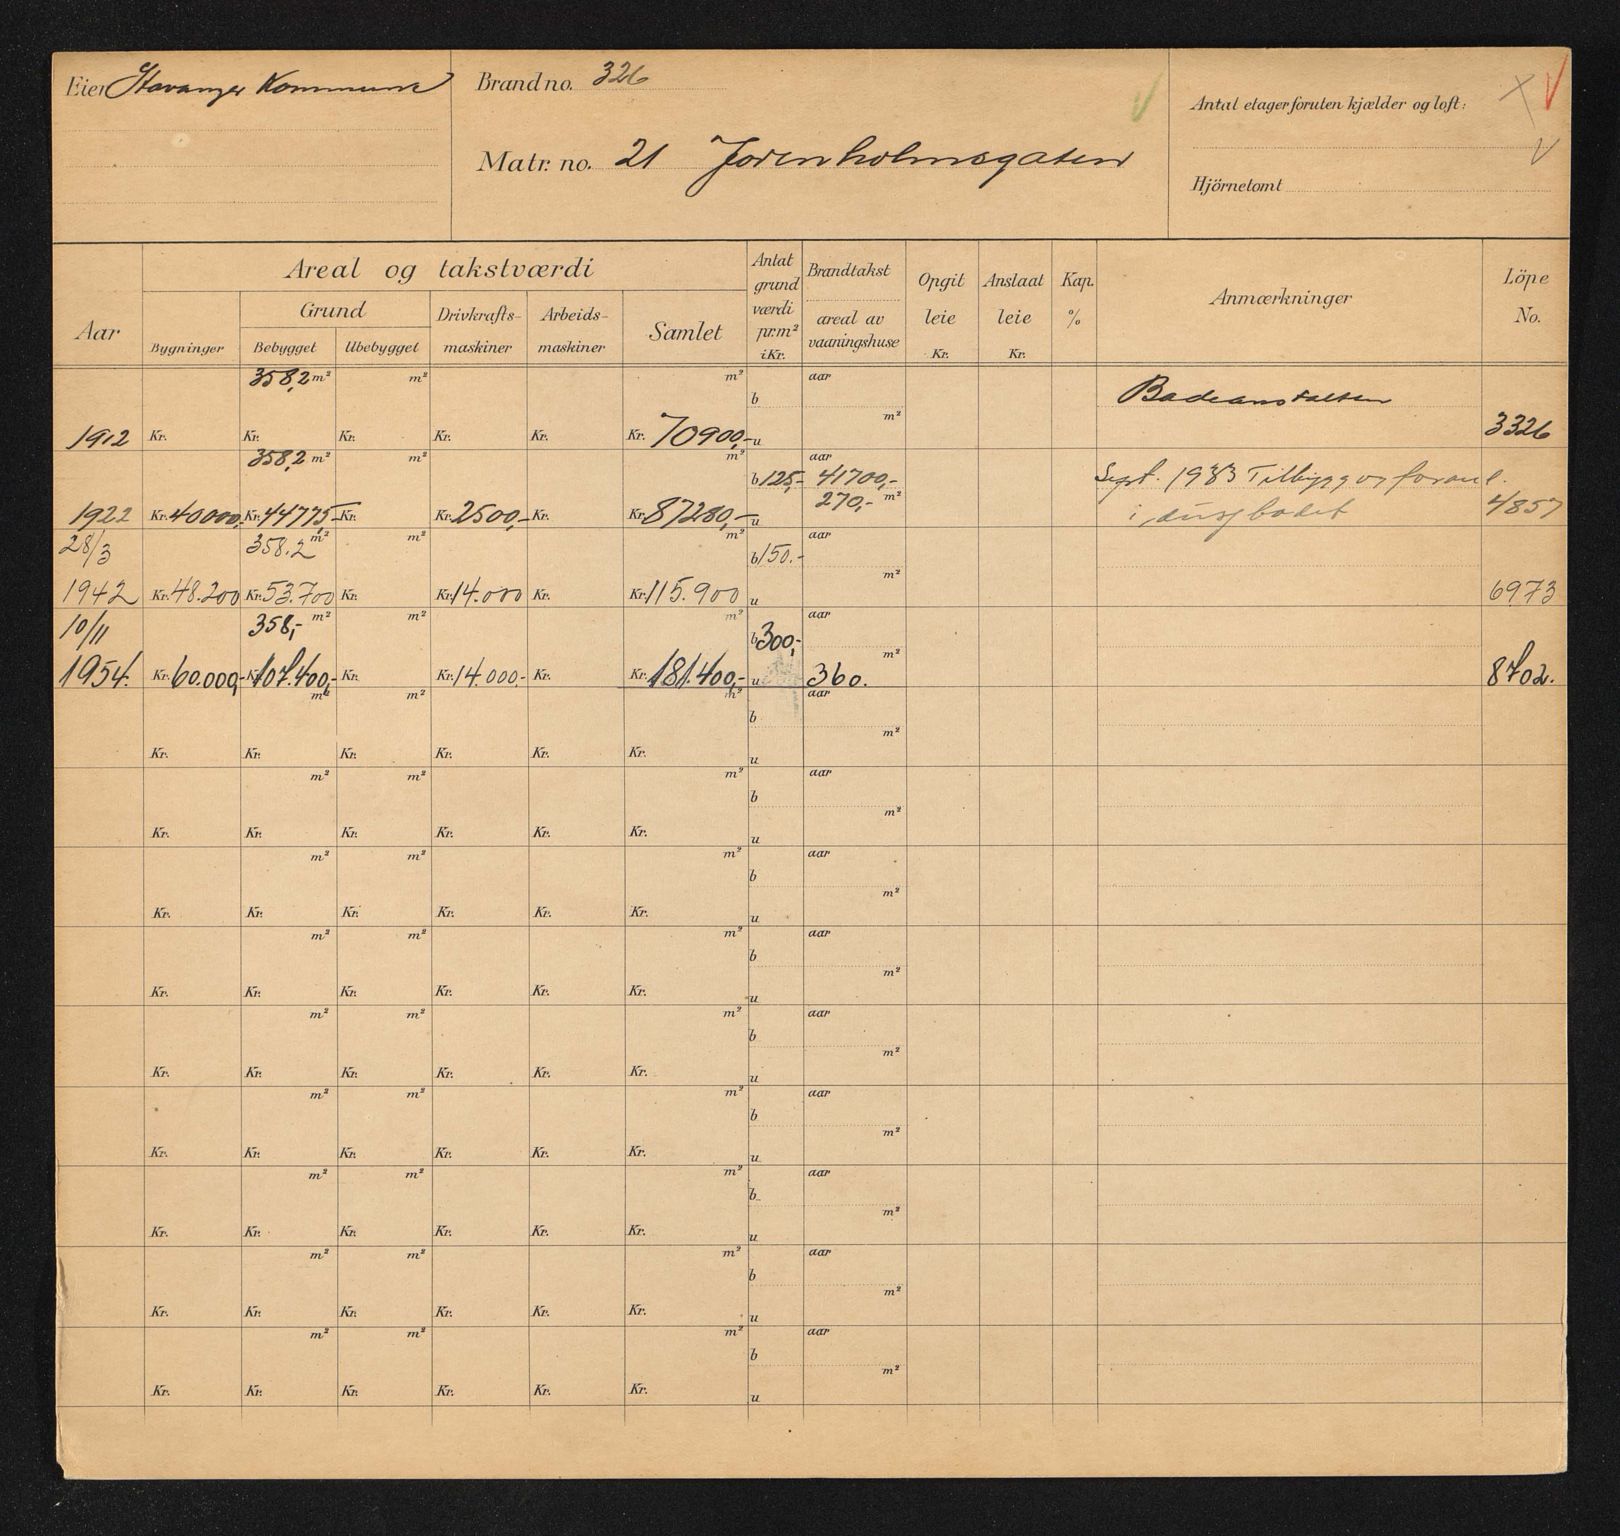 Eier Stavanger Kommune
Brandno. 326
Matr. no. 21 Jorenholmsgaten
Antal etager foruten kjælder og loft:
Hjörnetomt
Aar
Areal og takstværdi
Bygninger
Grund
Bebygget
Ubebygget
Drivkrafts-
maskiner
Arbeids-
maskiner
Samlet
Antat
grund
værdi
pr. m²
i Kr.
Brandtakst
areal av
vaaningshuse
Opgit
leie
Kr.
Anslaat
leie
Kr.
Kap.
%
Anmærkninger
Löpe
No.
358,2 m² m² m² aar
b m² Badeanstalten
1912 Kr. Kr. Kr. Kr. Kr. Kr. 70900,- u 3326
358,2 m² m² m² aar
b 125,- 41700,- Sept. 1933 Tilbygg og foran
270,- m² i dusjbadet
1922 Kr. 40000, Kr. 44775,- Kr. Kr. 2500,- Kr. Kr. 87280,- u 4857
28/3 358.2 m² m² m² aar
b 150.- m²
1942 Kr. 48.200 Kr. 53.700 Kr. Kr. 14.000 Kr. Kr. 115.900 u 6973
10/11 358,- m² m² m² aar
b 300,- m²
1954. Kr. 60.000,- Kr. 107.400,- Kr. Kr. 14.000.- Kr. Kr. 181.400,- u 360. 8702.
m² m² m² aar
b m²
Kr. Kr. Kr. Kr. Kr. Kr. u
m² m² m² aar
b m²
Kr. Kr. Kr. Kr. Kr. Kr. u
m² m² m² aar
b m²
Kr. Kr. Kr. Kr. Kr. Kr. u
m² m² m² aar
b m²
Kr. Kr. Kr. Kr. Kr. Kr. u
m² m² m² aar
b m²
Kr. Kr. Kr. Kr. Kr. Kr. u
m² m² m² aar
b m²
Kr. Kr. Kr. Kr. Kr. Kr. u
m² m² m² aar
b m²
Kr. Kr. Kr. Kr. Kr. Kr. u
m² m² m² aar
b m²
Kr. Kr. Kr. Kr. Kr. Kr. u
m² m² m² aar
b m²
Kr. Kr. Kr. Kr. Kr. Kr. u